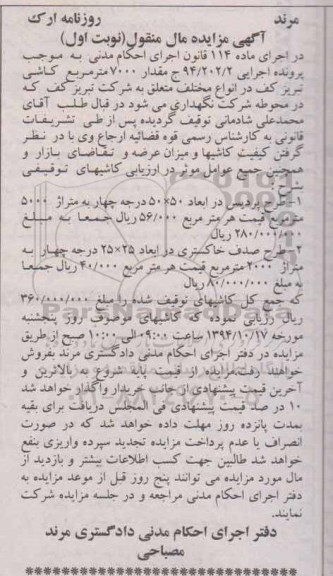 مرند روزنامه ارک
آگهی مزایده مال منقول(نوبت اول)
در اجرای ماده ۱۱۴ قانون اجرای احکام مدنی به موجب
پرونده اجرایی ۹۴/۲۰۲/۲ ج مقدار ۷۰۰۰مترمربع کاشی
تبریز کف در انواع مختلف متعلق به شرکت تبریز کف که
در محوطه شرکت نگهداری می شود در قبال طلب آقای
محمدعلی شادمانی توقیف گردیده پس از طی تشریفات
قانونی به کارشناس رسمی قوه قضائیه ارجاع وی با در نظر
گرفتن کیفیت کاشیها و میزان عرضه و تقاضای بازار و
همچنین جمیع عوامل موثر در ارزیابی کاشیهای توقیفی
بشرح:
۱-طرح پردیس در ابعاد ۵۰×۵۰ درجه چهار به متراژ ۵۰۰۰
مترمربع قیمت هر متر مربع ۵۶/۰۰۰ ریال جمعا به مبلغ
۲۸۰/۰۰۰/۰۰۰ ریال
۲-طرح صدف خاکستری در ابعاد ۲۵×۲۵ درجه چهار به
متراژ ۲۰۰۰ مترمربع قیمت هر متر مربع ۴۰/۰۰۰ ریال جمعا
به مبلغ ۸۰/۰۰۰/۰۰۰ ریال
که جمع کل کاشیهای توقیف شده را مبلغ ۳۶۰/۰۰۰/۰۰۰
ریال ارزیابی نموده که کاشیهای موصوف روز پنجشنبه
مورخه ۱۳۹۴/۱۰/۱۷ ساعت ۰۹:۰۱ الی ۱۰:۰۰ صبح از طریق
مزایده در دفتر اجرای احکام مدنی دادگستری مرند بفروش
خواهند رفت.مزایده از قیمت پایه شروع به بالاترین و
آخرین قیمت پیشنهادی از جانب خریدار واگذار خواهد شد
۱۰ در صد قیمت پیشنهادی فی المجلس دریافت برای بقیه
بمدت پانزده روز مهلت داده خواهد شد که در صورت
انصراف یا عدم پرداخت مزایده تجدید سپرده واریزی بنفع
خواهد شد طالبین جهت کسب اطلاعات بیشتر و بازدید از
مال مورد مزایده می توانند پنج روز قبل از موعد مزایده به
دفتر اجرای احکام مدنی مراجعه و در جلسه مزایده شرکت
نمایند.
دفتر اجرای احکام مدنی دادگستری مرند
مصباحی